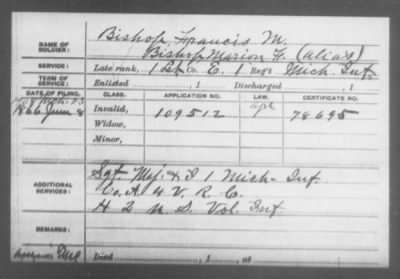 NAME OF SOLDIER: Bishop, Francis M.
Bishop Marion F. (alias)
SERVICE: Late rank, 1 Lt Co. E, 1 Reg't Mich. Inf.
TERM OF SERVICE: Enlisted , 1 Discharged , 1
DATE OF FILING. CLASS. APPLICATION NO. LAW. CERTIFICATE NO.
1866 June 8 Invalid, 109512 78695
Widow,
Minor,
ADDITIONAL SERVICES: Sgt. Maj. & I 1 Mich. Inf.
Co. A. 4 V. R. C.
H 2 U. S. Vol. Inf.
REMARKS:
Died , 1 , at